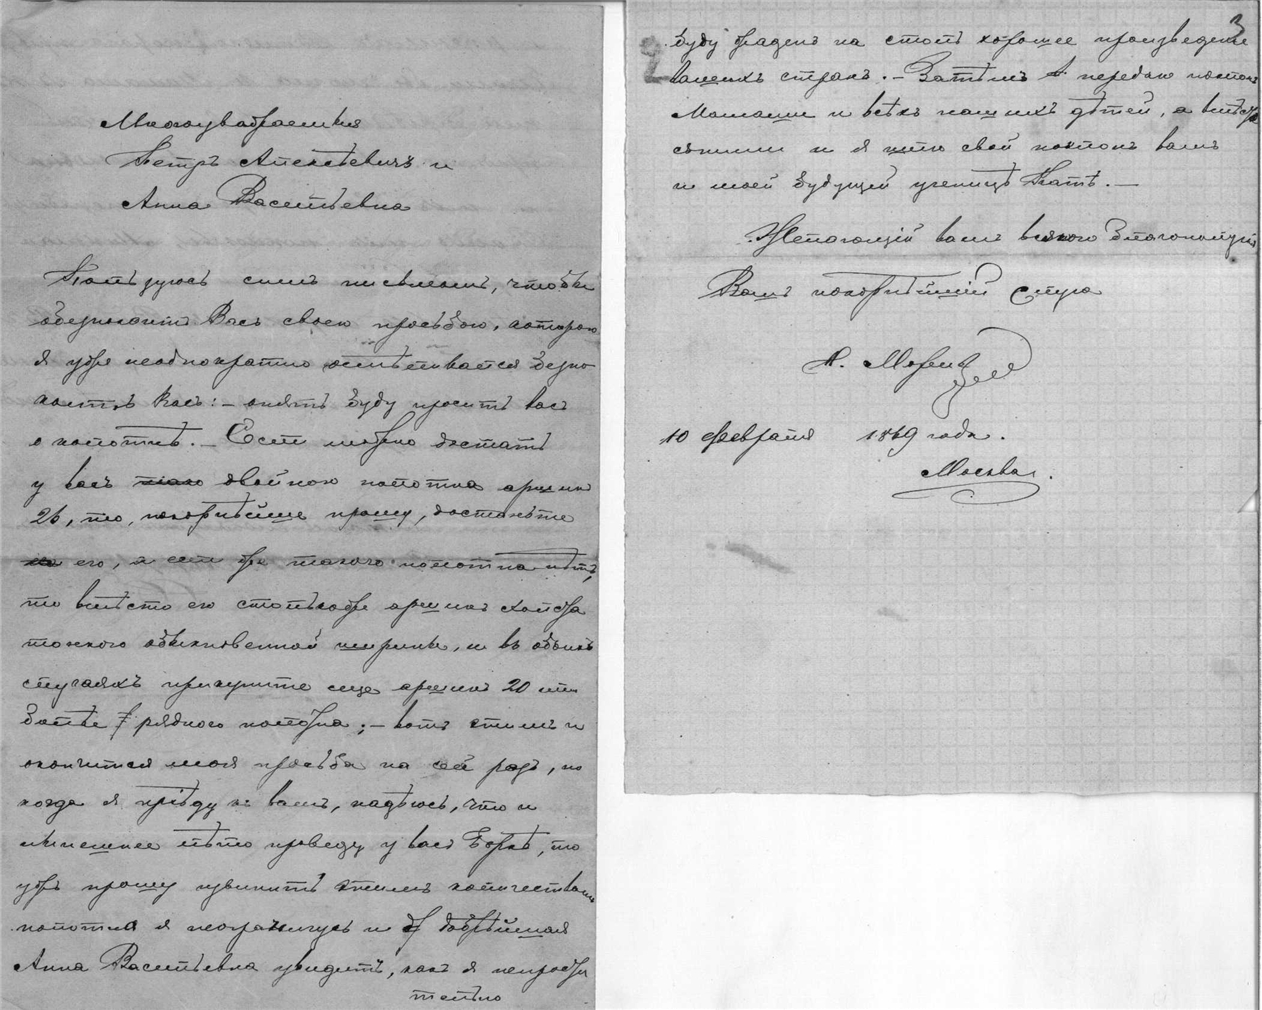 Многоуважаемые
Петръ Алексѣевичъ и
Анна Васильевна
Пользуюсь симъ письмомъ, чтобы
обезпокоить Васъ своею просьбою, которою
я уже неоднократно осмѣливался безпо-
коить Васъ: – опять буду просить васъ
о полотнѣ. – Если можно достать
у васъ двойного полотна аршинъ
26, то, покорнѣйше прошу, достаньте
его, а если же такого полотна нѣтъ,
то вмѣсто его столько же аршинъ холста
тонкаго обыкновенной ширины, и въ обоихъ
случаяхъ прикупите еще аршинъ 20 или
болѣе рядного полотна; – вотъ этимъ и
окончится моя просьба на сей разъ, но
когда я пріѣду къ вамъ, надѣюсь, что и
нынешнее лѣто проведу у васъ, то
ужъ прошу извинить этимъ количествомъ
полотна я неограничусь и добрѣйшая
Анна Васильевна увидитъ, какъ я
тельно
3
2
буду жаденъ на столь хорошее произведение
вашихъ странъ. – Затѣмъ передаю поклонъ
Мамаши и всѣхъ нашихъ дѣтей, а вмѣстѣ
съ ними и я шлю свой поклонъ вамъ
и моей будущей ученицѣ Катѣ. –
Желающій вамъ всякого благополучія
Вашъ покорнѣйшій слуга
А.
10 Февраля 1869 года.
Москва.